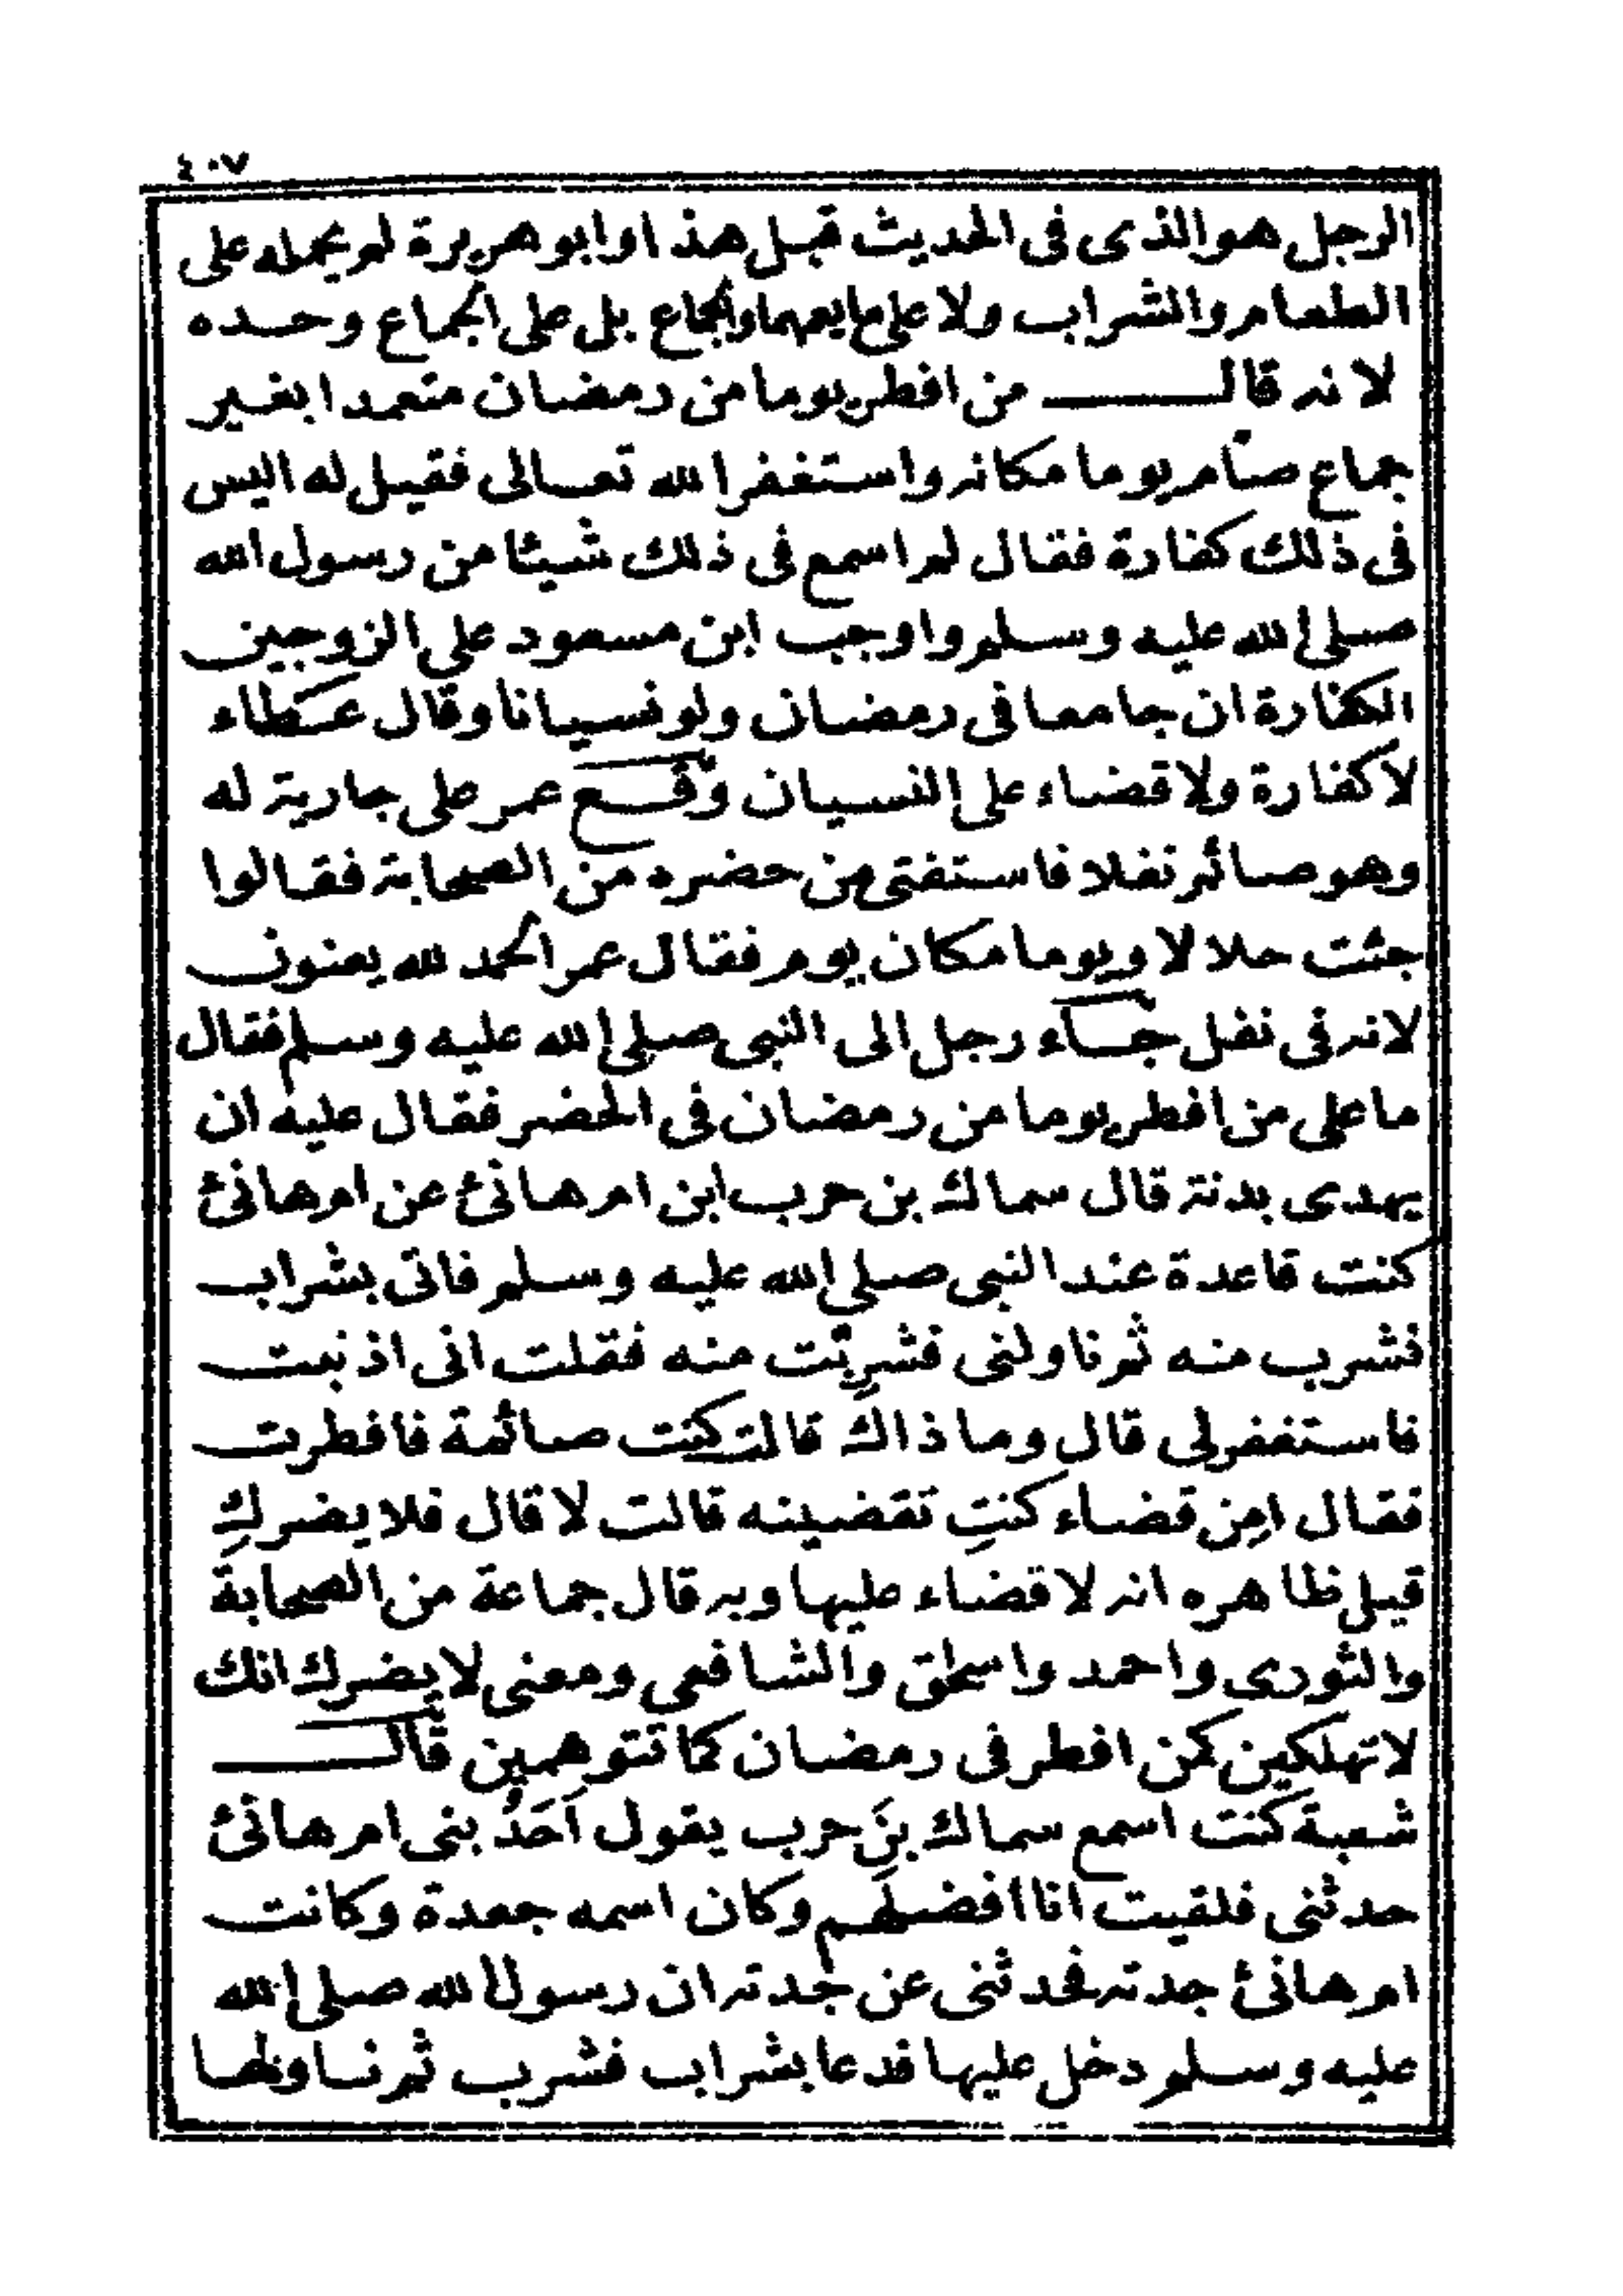 ٤٠٧
الرجل هو الذى فى الحديث قبل هذا وابو هريرة لم يحمله على
الطعام والشراب ولا على ما يعمهما والجماع بل على الجماع وحده
لانه قال من افطر يوما من رمضان متعمدا بغير
جماع صام يوما مكانه واستغفر الله تعالى فقيل له اليس
فى ذلك كفارة فقال لم اسمع فى ذلك شيئا من رسول الله
صلى الله عليه وسلم واوجب ابن مسعود على الزوجين
الكفارة ان جامعا فى رمضان ولو نسيانا وقال عطاء
لا كفارة ولا قضاء على النسيان وقع عمر على جارية له
وهو صائم نفلا فاستفتى من حضره من الصحابة فقالوا
جئت حلالا ويوما مكان يوم فقال عمر الحمد لله يعنون
لانه فى نفل جاء رجل الى النبى صلى الله عليه وسلم فقال
ما على من افطر يوما من رمضان فى الحضر فقال عليه ان
يهدى بدنة قال سماك بن حرب ابن ام هانئ عن ام هانئ
كنت قاعدة عند النبى صلى الله عليه وسلم فاتى بشراب
فشرب منه ثم ناولنى فشربت منه فقلت انى اذنبت
فاستغفر لى قال وما ذاك قالت كنت صائمة فافطرت
فقال امن قضاء كنتِ تقضينه قالت لا قال فلا يضركِ
قيل ظاهره انه لا قضاء عليها وبه قال جماعة من الصحابة
والثورى واحمد واسحاق والشافعى ومعنى لا يضرك انك
لا تهلكين كمن افطر فى رمضان كما تتوهمين قال
شعبة كنت اسمع سماك بنَ حرب يقول اَحَدُ بنى ام هانئ
حدثنى فلقيت انا افضلهم وكان اسمه جعدة وكانت
ام هانئ جدته فحدثنى عن جدته ان رسول الله صلى الله
عليه وسلم دخل عليها فدعا بشراب فشرب ثم ناولها